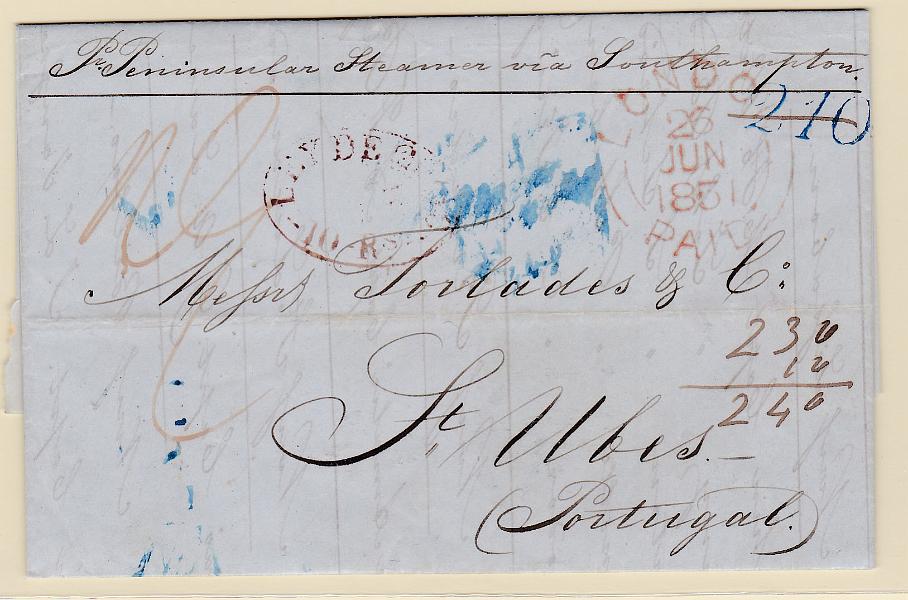 Pr. Peninsular Steamer via Southampton.
210
LONDO
26
JUN
1851
PAID
LEI DE 2
10 RS
Messrs Torlades & Co:
230
10
240
St. Ubes.
(Portugal.)